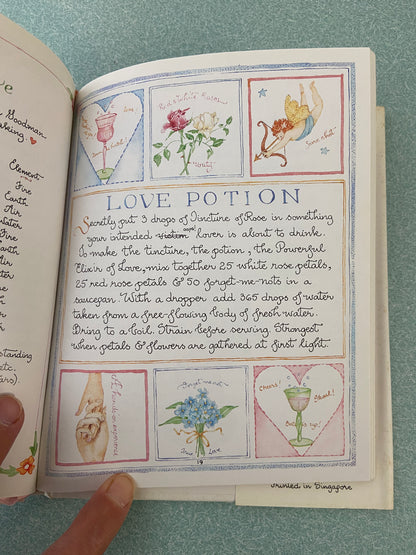 ve
Goodman
Element
Fire
Earth
Air
Water
Fire
Earth
Air
Water
Fire
Earth
Air
Water
standing
etc.
Red & White Roses
Unity
LOVE POTION
Secretly put 3 drops of Tincture of Rose in something
your intended victim oops! lover is about to drink.
To make the tincture, the potion, the Powerful
Elixir of Love, mix together 25 white rose petals,
25 red rose petals & 50 forget-me-nots in a
saucepan. With a dropper add 365 drops of water
taken from a free-flowing body of fresh water.
Bring to a boil. Strain before serving. Strongest
when petals & flowers are gathered at first light.
A hands-on experience
Forget me not
True Love
Cheers!
Skoal!
Bottoms up!
19
Printed in Singapore